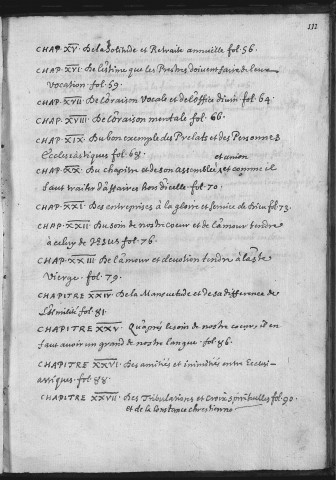 111
CHAP. XV. De la Solitude et Retraite annuelle fol. 56.
CHAP. XVI. De l'estime que les Prestres doivent faire de leur
vocation. fol. 59.
CHAP. XVII. De l'oraison Vocale et de l'office divin fol. 64.
CHAP. XVIII. De l'oraison mentale fol. 66.
CHAP. XIX. Du bon exemple des Prelats et des Personnes
Ecclesiastiques fol. 68.
et union
CHAP. XX. Du chapitre et de son assemblée et comme il
faut traiter d'affaires hors d'icelle fol. 70.
CHAP. XXI. Des entreprises à la gloire et service de Dieu fol. 73.
CHAP. XXII. Du soin de nostre coeur et de l'amour tendre
à celuy de JESUS fol. 76.
CHAP. XXIII. De l'amour et devotion tendre à la Ste
Vierge. fol. 79.
CHAPITRE XXIV. De la Mansuetude et de sa difference de
l'humilité fol. 81.
CHAPITRE XXV. Qu'apres le soin de nostre coeur, il en
faut avoir un grand de nostre langue. fol. 86.
CHAPITRE XXVI. Des amitiés et inimitiés entre Ecclesi-
astiques. fol. 88.
CHAPITRE XXVII. Des Tribulations et Croix spirituelles fol. 90
et de la constance chrestienne